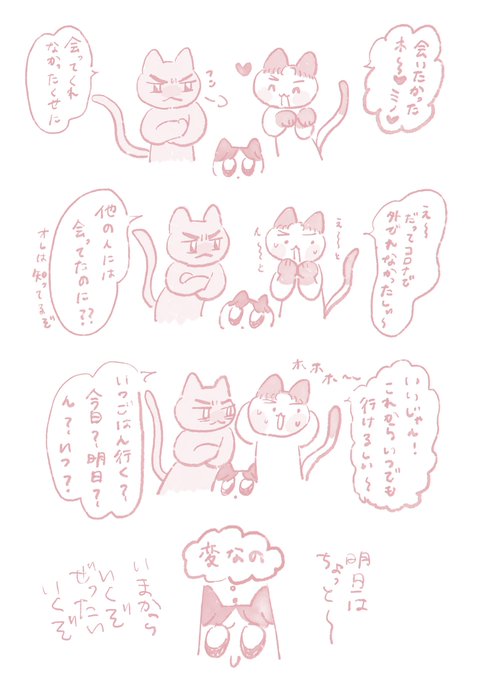 会いたかった
ホ〜♥ミノ♥
フン
会ってくれ
なかったくせに
え〜
だってコロナで
外でれなかったしぃ〜
え〜と
え〜と
他の人には
会ってたのに??
オレは知ってるぞ
いいじゃん!
これからいつでも
行けるしぃ〜
ホホホ〜〜
いつごはん行く?
今日?明日?
ん?いつ?
明日は
ちょっと〜
変なの
いまから
いくぞ
ぜったい
いくぞ